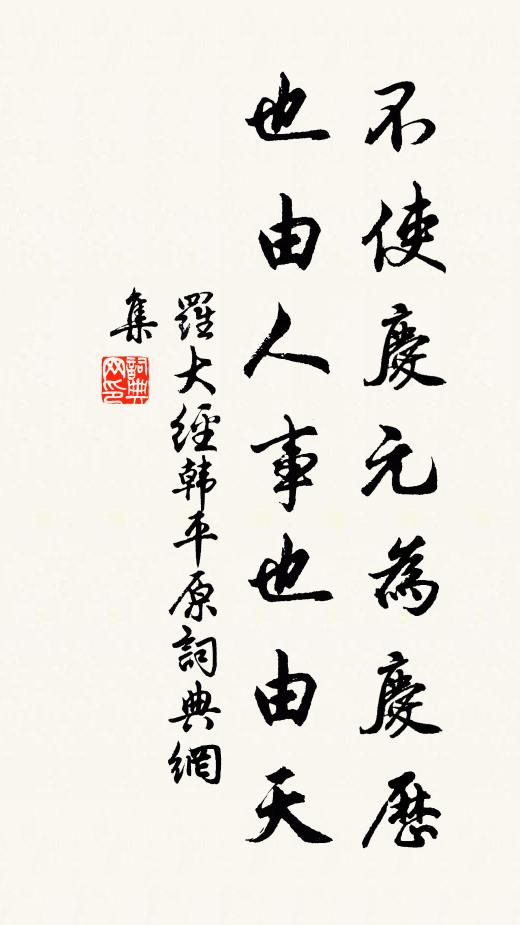 不使慶元為慶歷
也由人事也由天
羅大經韩平原詞典網
集
詞典网印